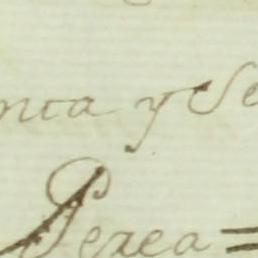 nca y Se
Perea =